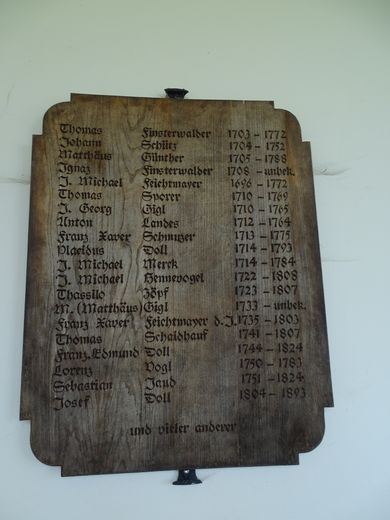 Thomas Finsterwalder 1703 – 1772
Johann Schütz 1704 – 1752
Matthäus Günther 1705 – 1788
Ignaz Finsterwalder 1708 – unbek.
J. Michael Feichtmayer 1696 – 1772
Thomas Sporer 1710 – 1769
J. Georg Gigl 1710 – 1765
Anton Landes 1712 – 1764
Franz Xaver Schmuzer 1713 – 1775
Plaeidus Doll 1714 – 1793
J. Michael Merck 1714 – 1784
J. Michael Hennevogel 1722 – 1808
Thassilo Zöpf 1723 – 1807
M. (Matthäus) Gigl 1733 – unbek.
Franz Xaver Feichtmayer d. J. 1735 – 1803
Thomas Schaidhauf 1741 – 1807
Franz.Edmund Doll 1744 – 1824
Lorenz Vogl 1750 – 1783
Sebastian Jaud 1751 – 1824
Josef Doll 1804 – 1893
und vieler anderer